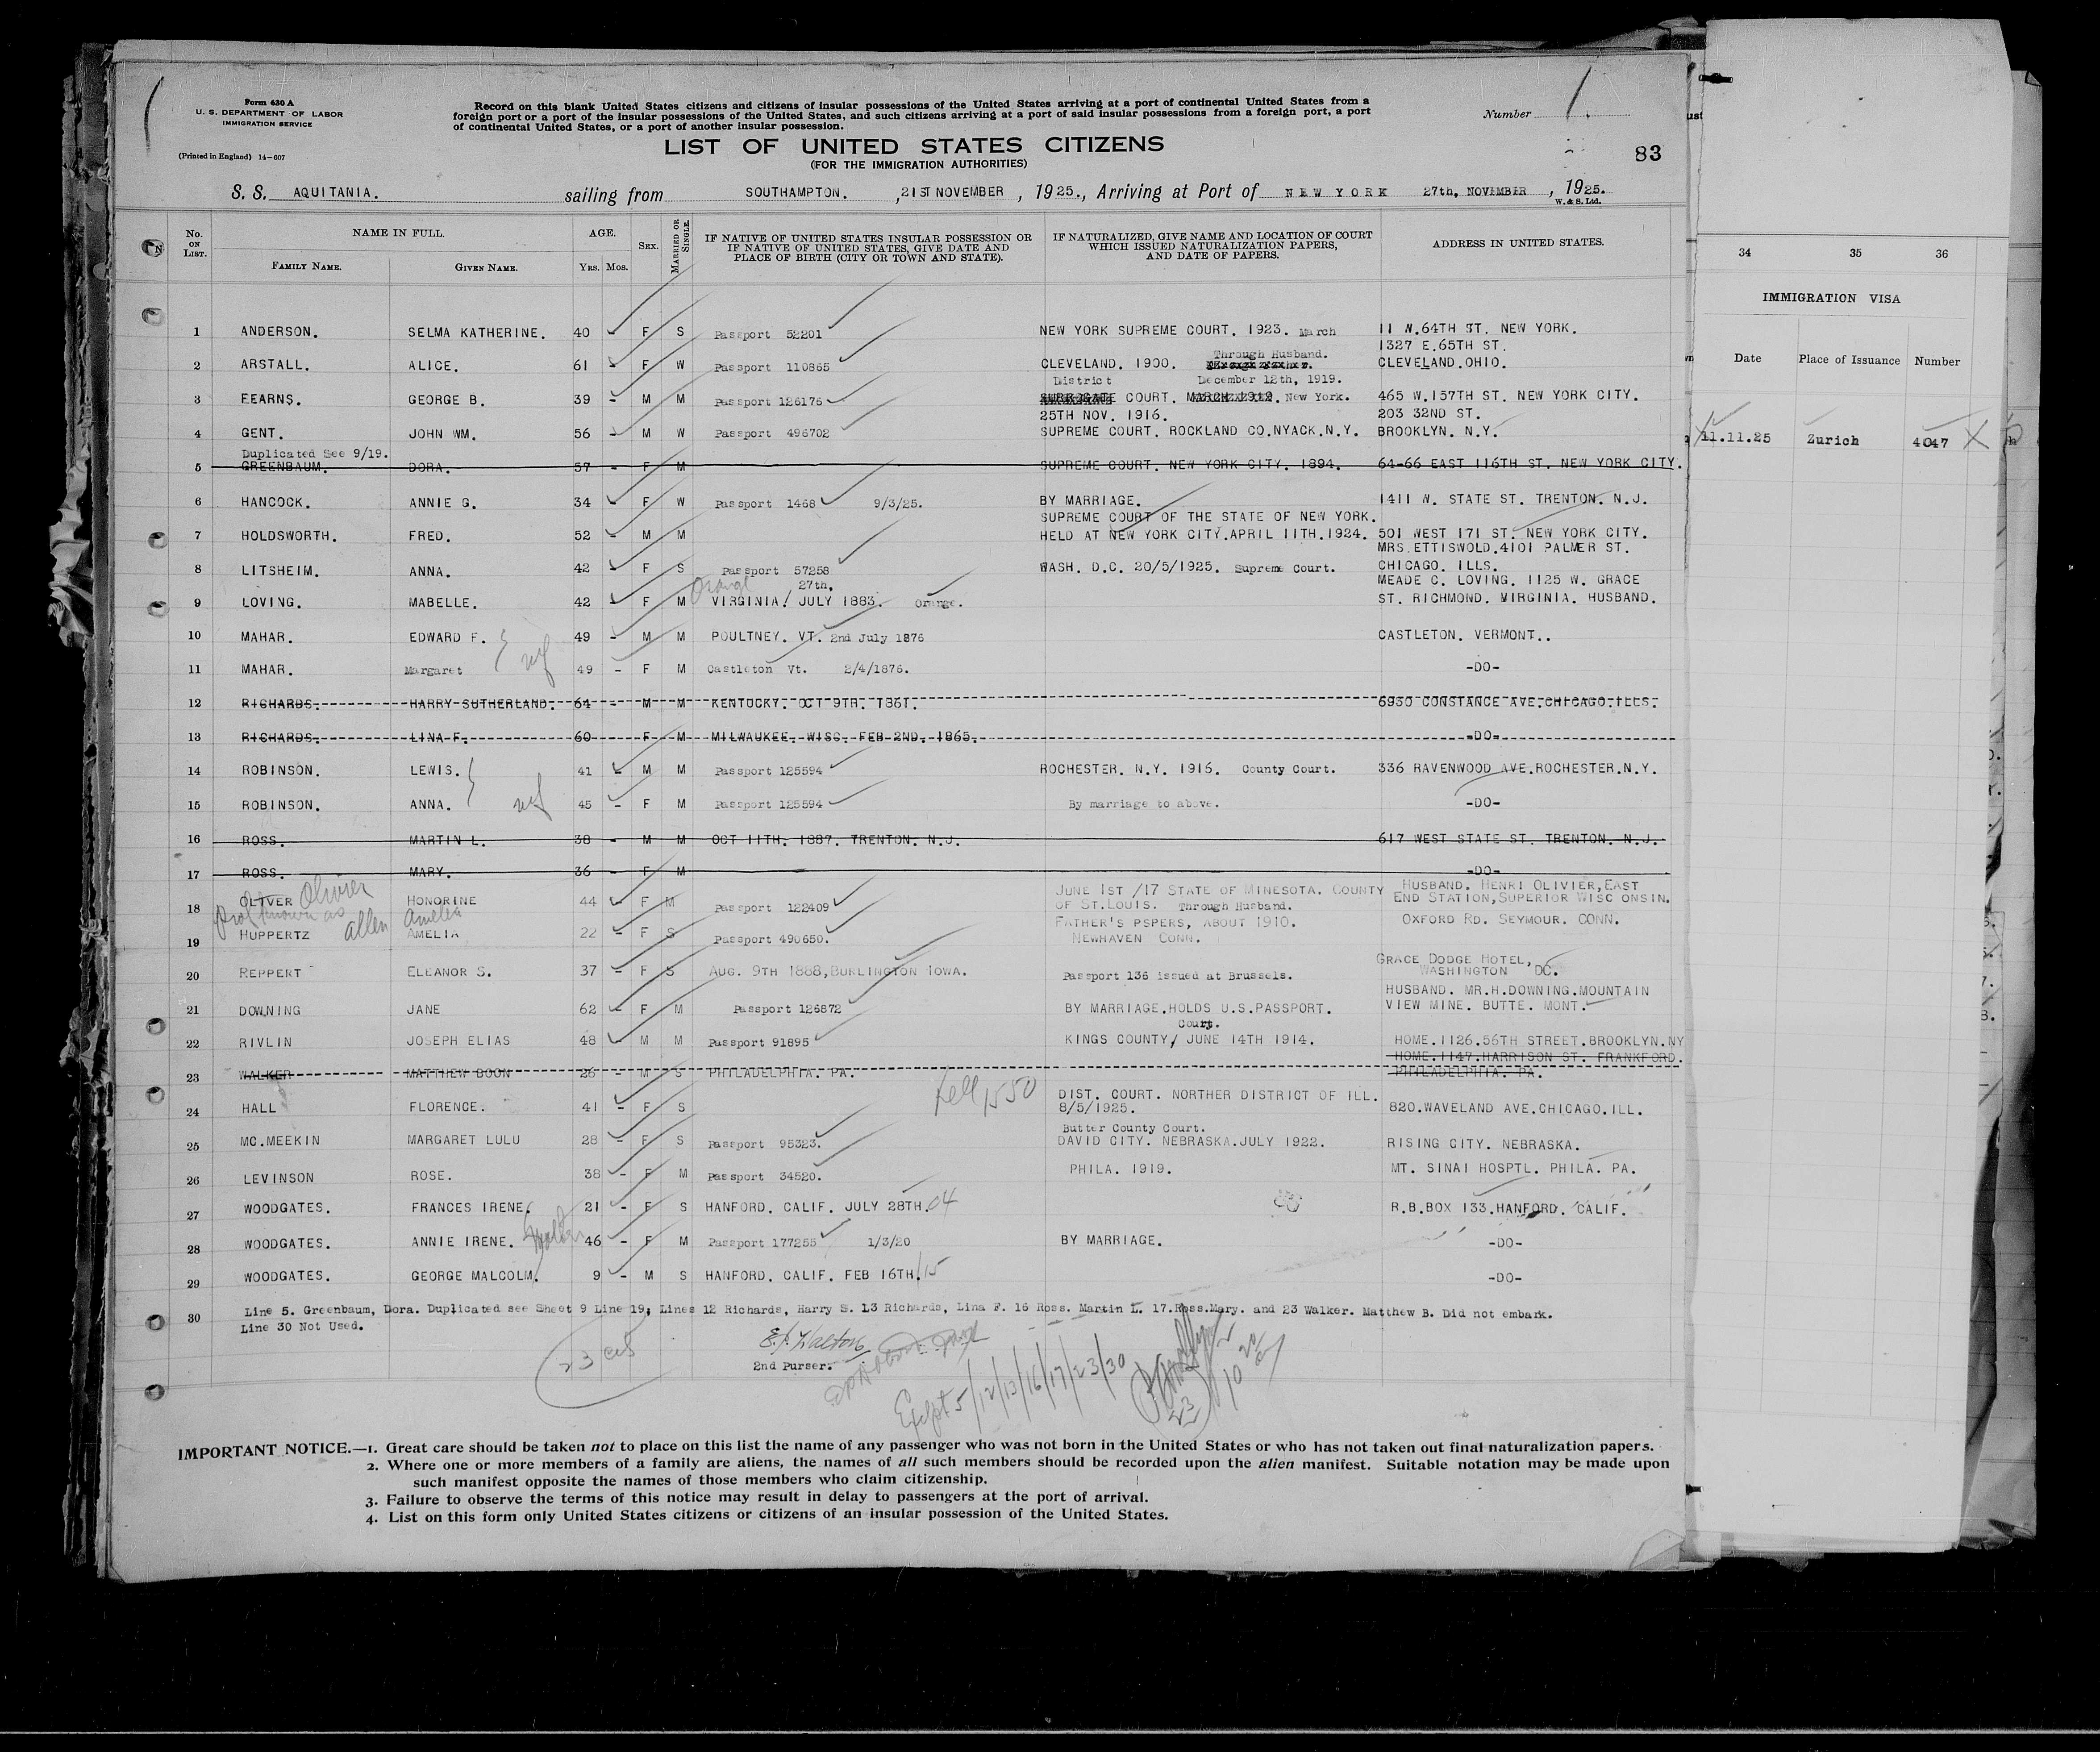 Form 630 A
U. S. DEPARTMENT OF LABOR
IMMIGRATION SERVICE
(Printed in England) 14-607
Record on this blank United States citizens and citizens of insular possessions of the United States arriving at a port of continental United States from a
foreign port or a port of the insular possessions of the United States, and such citizens arriving at a port of said insular possessions from a foreign port, a port
of continental United States, or a port of another insular possession.
Number 1
LIST OF UNITED STATES CITIZENS
(FOR THE IMMIGRATION AUTHORITIES)
83
S. S. AQUITANIA. sailing from SOUTHAMPTON. ,21ST NOVEMBER , 1925., Arriving at Port of NEW YORK 27th, NOVEMBER , 1925.
W. & S. Ltd.
No. ON LIST. NAME IN FULL. AGE. SEX. MARRIED OR SINGLE. IF NATIVE OF UNITED STATES INSULAR POSSESSION OR IF NATIVE OF UNITED STATES, GIVE DATE AND PLACE OF BIRTH (CITY OR TOWN AND STATE). IF NATURALIZED, GIVE NAME AND LOCATION OF COURT WHICH ISSUED NATURALIZATION PAPERS, AND DATE OF PAPERS. ADDRESS IN UNITED STATES.
FAMILY NAME. GIVEN NAME. YRS. MOS.
1 ANDERSON. SELMA KATHERINE. 40 - F S Passport 52201 NEW YORK SUPREME COURT. 1923. March 11 W.64TH ST. NEW YORK.
1327 E.65TH ST.
Through Husband.
2 ARSTALL. ALICE. 61 - F W Passport 110865 CLEVELAND. 1900. CLEVELAND.OHIO.
District December 12th, 1919.
3 FEARNS. GEORGE B. 39 - M M Passport 126176 COURT. MARCH 1919. New York. 465 W.157TH ST. NEW YORK CITY.
25TH NOV. 1916. 203 32ND ST.
4 GENT. JOHN WM. 56 - M W Passport 496702 SUPREME COURT. ROCKLAND CO.NYACK.N.Y. BROOKLYN. N.Y.
Duplicated See 9/19.
5 GREENBAUM. DORA. 57 - F M SUPREME COURT. NEW YORK CITY. 1894. 64-66 EAST 116TH ST. NEW YORK CITY.
6 HANCOCK. ANNIE G. 34 - F W Passport 1468 9/3/25. BY MARRIAGE. 1411 W. STATE ST. TRENTON. N.J.
SUPREME COURT OF THE STATE OF NEW YORK.
7 HOLDSWORTH. FRED. 52 - M M HELD AT NEW YORK CITY.APRIL 11TH.1924. 501 WEST 171 ST. NEW YORK CITY.
MRS.ETTISWOLD.4101 PALMER ST.
8 LITSHEIM. ANNA. 42 - F S Passport 57258 WASH. D.C. 20/5/1925. Supreme Court. CHICAGO. ILLS.
Orange 27th, MEADE C. LOVING. 1125 W. GRACE
9 LOVING. MABELLE. 42 - F M VIRGINIA/ JULY 1883. Orange. ST. RICHMOND. VIRGINIA. HUSBAND.
10 MAHAR. EDWARD F. 49 - M M POULTNEY. VT. 2nd July 1876 CASTLETON. VERMONT..
11 MAHAR. Margaret 49 - F M Castleton Vt. 2/4/1876. -DO-
12 RICHARDS. HARRY SUTHERLAND. 64 - M M KENTUCKY. OCT 9TH. 1861. 6930 CONSTANCE AVE.CHICAGO.ILLS.
13 RICHARDS. LINA F. 60 - F M MILWAUKEE. WISC. FEB 2ND. 1865. -DO-
14 ROBINSON. LEWIS. 41 - M M Passport 125594 ROCHESTER. N.Y. 1916. County Court. 336 RAVENWOOD AVE.ROCHESTER.N.Y.
15 ROBINSON. ANNA. 45 - F M Passport 125594 By marriage to above. -DO-
16 ROSS. MARTIN L. 38 - M M OCT 11TH. 1887. TRENTON. N.J. 617 WEST STATE ST. TRENTON. N.J.
17 ROSS. MARY. 36 - F M -DO-
JUNE 1ST /17 STATE OF MINESOTA. COUNTY HUSBAND. HENRI OLIVIER,EAST
18 OLIVER Olivier HONORINE 44 - F M Passport 122409 OF ST.LOUIS. Through Husband. END STATION,SUPERIOR WISC ONSIN.
known as allen Amelia FATHER'S PSPERS, ABOUT 1910. OXFORD RD. SEYMOUR. CONN.
19 HUPPERTZ AMELIA 22 - F S Passport 490650. NEWHAVEN CONN.
GRACE DODGE HOTEL,
20 REPPERT ELEANOR S. 37 - F S AUG. 9TH 1888,BURLINGTON IOWA. Passport 136 issued at Brussels. WASHINGTON DC.
HUSBAND. MR.H.DOWNING.MOUNTAIN
21 DOWNING JANE 62 - F M Passport 126872 BY MARRIAGE.HOLDS U.S.PASSPORT. VIEW MINE. BUTTE. MONT.
Court.
22 RIVLIN JOSEPH ELIAS 48 - M M Passport 91895 KINGS COUNTY/ JUNE 14TH 1914. HOME.1126.56TH STREET.BROOKLYN.NY
HOME.1147.HARRISON ST. FRANKFORD.
23 WALKER MATTHEW BOON 26 - M S PHILADELPHIA. PA. PHILADELPHIA. PA.
1550 DIST. COURT. NORTHER DISTRICT OF ILL.
24 HALL FLORENCE. 41 - F S 8/5/1925. 820.WAVELAND AVE.CHICAGO.ILL.
Butter County Court.
25 MC.MEEKIN MARGARET LULU 28 - F S Passport 95323. DAVID CITY. NEBRASKA.JULY 1922. RISING CITY. NEBRASKA.
26 LEVINSON ROSE. 38 - F M Passport 34520. PHILA. 1919. MT. SINAI HOSPTL. PHILA. PA.
27 WOODGATES. FRANCES IRENE. 21 - F S HANFORD. CALIF. JULY 28TH. 04 R.B.BOX 133.HANFORD. CALIF.
28 WOODGATES. ANNIE IRENE. 46 - F M Passport 177255 1/3/20 BY MARRIAGE. -DO-
29 WOODGATES. GEORGE MALCOLM. 9 - M S HANFORD. CALIF. FEB 16TH. /15 -DO-
30 Line 5. Greenbaum, Dora. Duplicated see Sheet 9 Line 19, Lines 12 Richards, Harry S. 13 Richards, Lina F. 16 Ross. Martin L. 17.Ross.Mary. and 23 Walker. Matthew B. Did not embark.
Line 30 Not Used.
23
E.J. Walton
2nd Purser.
Except 5/12/13/16/17/23/30
IMPORTANT NOTICE.—1. Great care should be taken not to place on this list the name of any passenger who was not born in the United States or who has not taken out final naturalization papers.
2. Where one or more members of a family are aliens, the names of all such members should be recorded upon the alien manifest. Suitable notation may be made upon
such manifest opposite the names of those members who claim citizenship.
3. Failure to observe the terms of this notice may result in delay to passengers at the port of arrival.
4. List on this form only United States citizens or citizens of an insular possession of the United States.
34 35 36
IMMIGRATION VISA
Date Place of Issuance Number
11.11.25 Zurich 4047